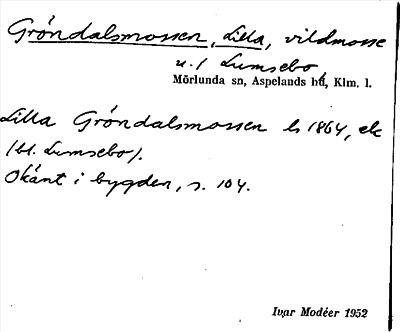 Gröndalsmossen, Lilla, vildmosse
u./ Lumsebo
Mörlunda sn, Aspelands hd, Klm. l.
Lilla Gröndalsmossen ls 1864, ek
(bl. Lumsebo).
Okänt i bygden, s. 104.
Ivar Modéer 1952